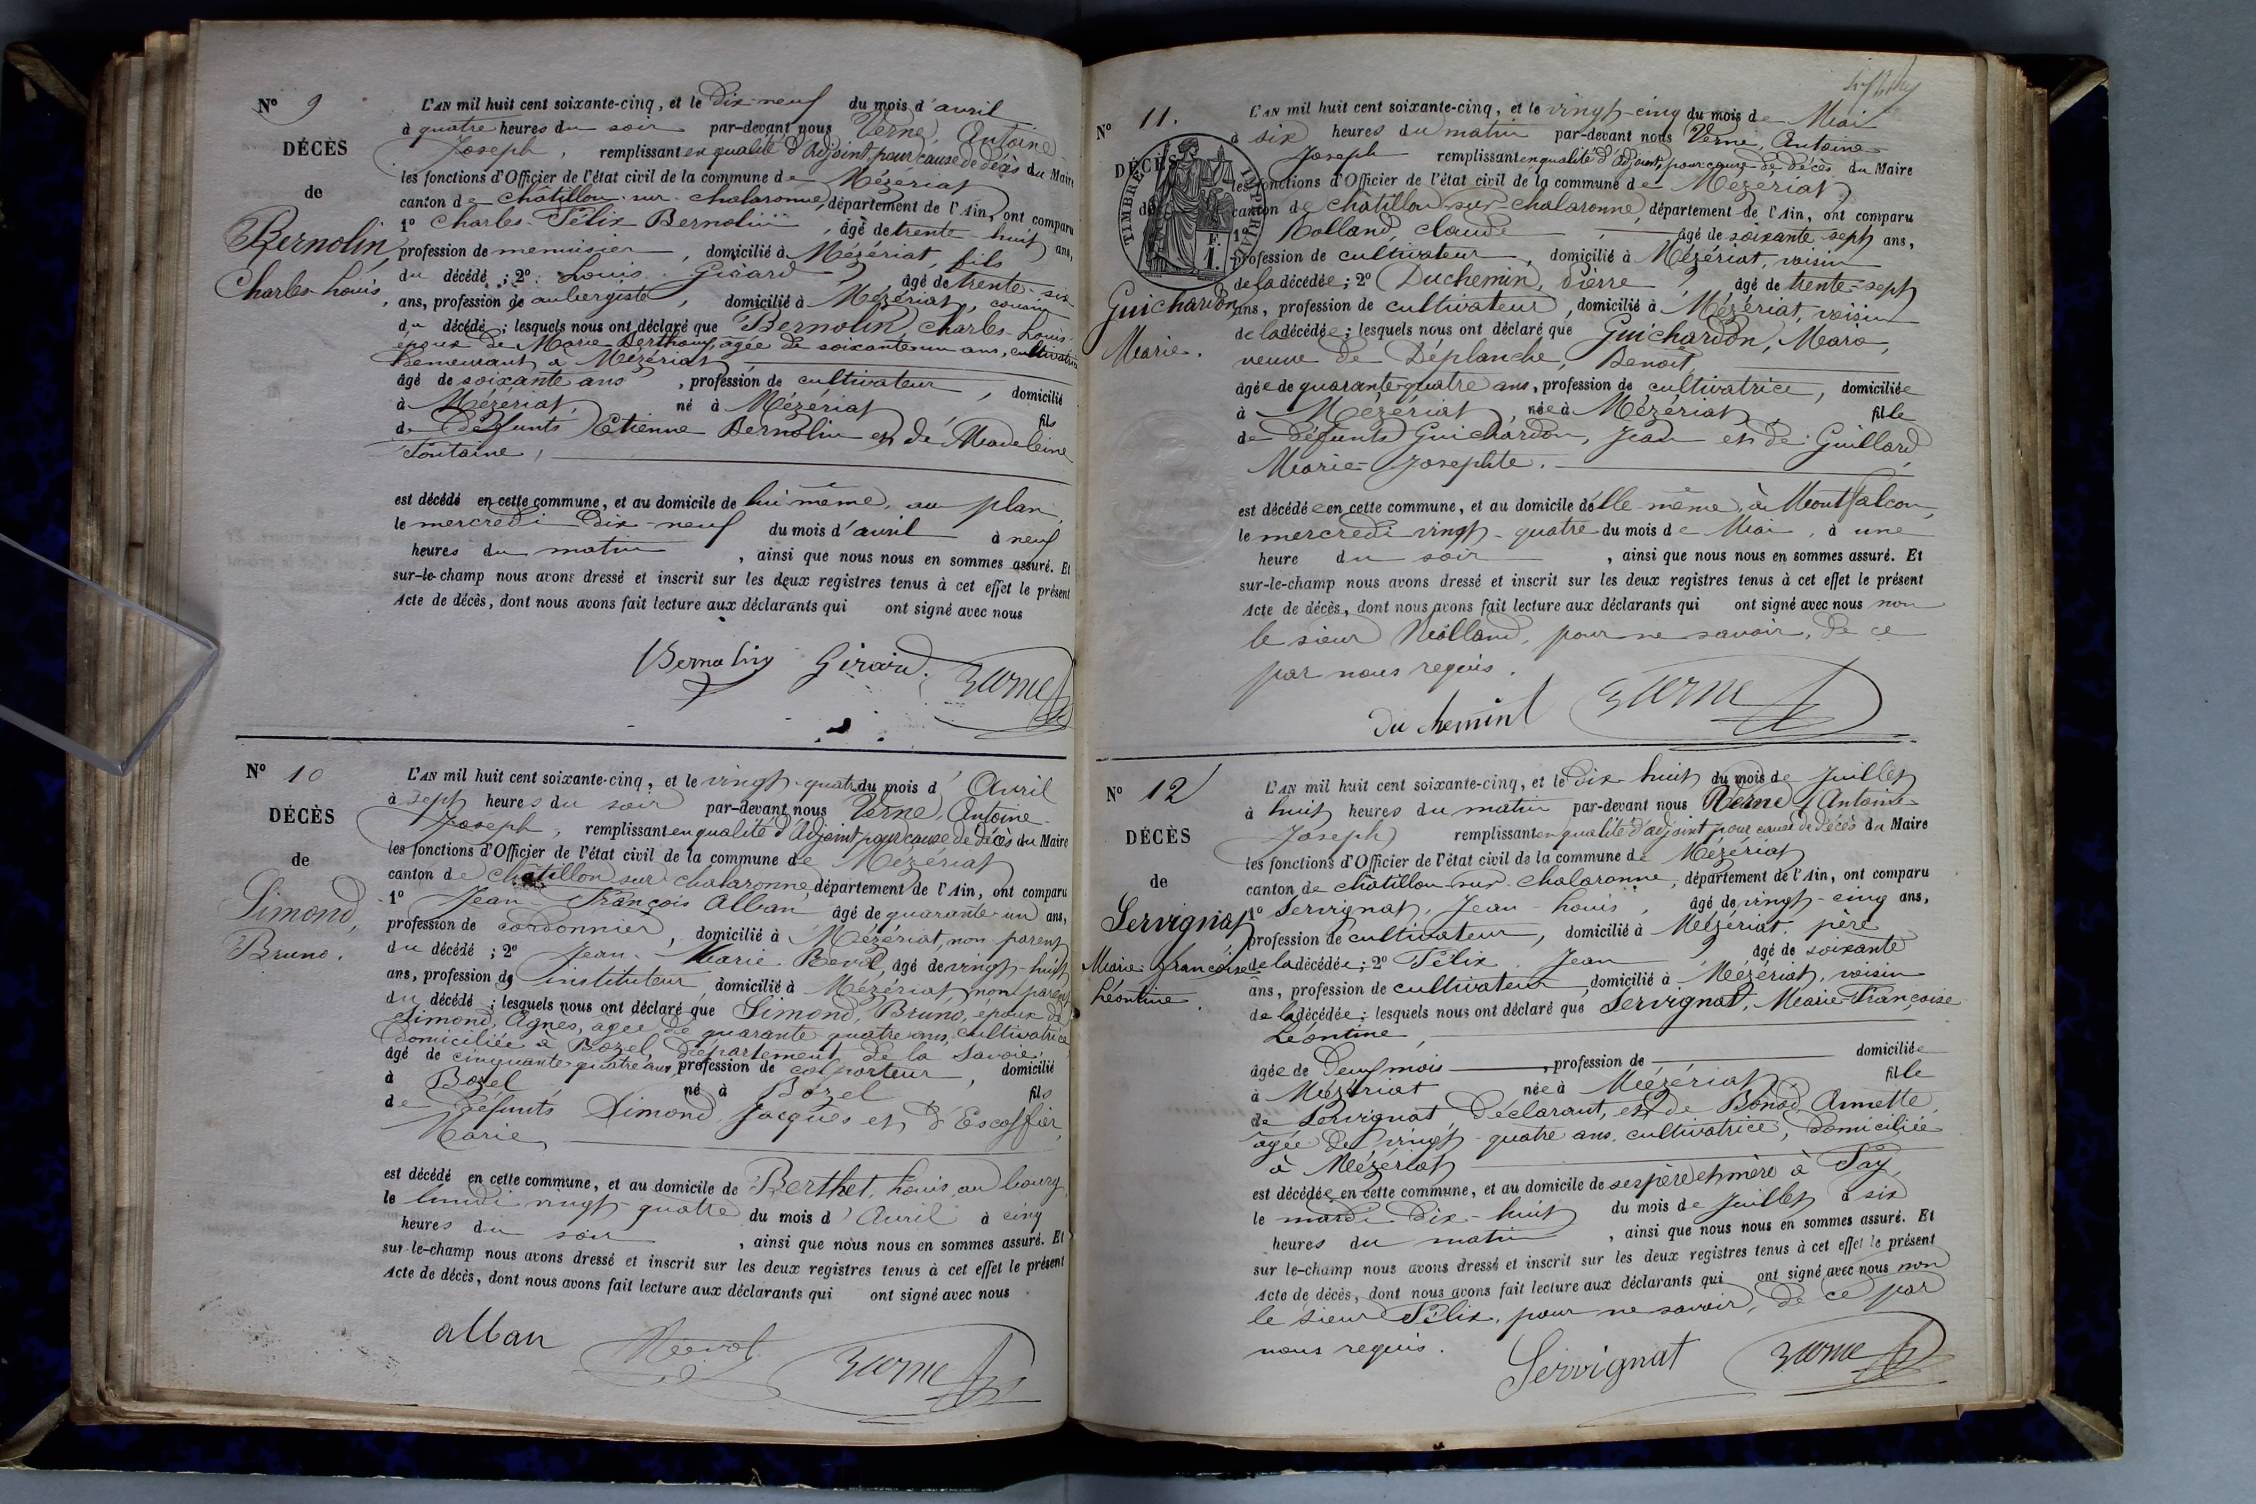 N° 9
DÉCÈS
de
Bernolin
Charles-Louis,
L'AN mil huit cent soixante-cinq, et le dix-neuf du mois d'avril
à quatre heures du soir par-devant nous Verne, Antoine
Joseph, remplissant en qualité d'Adjoint, pour cause de décès du Maire
les fonctions d'Officier de l'état civil de la commune de Mézériat
canton de Châtillon-sur-chalaronne, département de l'Ain, ont comparu
1° Charles-Félix Bernolin, âgé de trente-huit ans,
profession de menuisier, domicilié à Mézériat, fils
du décédé; 2° Louis Girard âgé de trente-six
ans, profession de aubergiste, domicilié à Mézériat, cousin
du décédé; lesquels nous ont déclaré que Bernolin, Charles-Louis
époux de Marie, agée de soixante un ans, cultivatrice
demeurant à Mézériat
âgé de soixante ans, profession de cultivateur, domicilié
à Mézériat, né à Mézériat fils
de défunts Etienne Bernolin et de Madeleine
Fontaine,
est décédé en cette commune, et au domicile de lui même, au plan,
le mercredi dix-neuf du mois d'avril à neuf
heures du matin, ainsi que nous nous en sommes assuré. Et
sur-le-champ nous avons dressé et inscrit sur les deux registres tenus à cet effet le présent
Acte de décès, dont nous avons fait lecture aux déclarants qui ont signé avec nous
Bernolin Girard Verne
N° 10
DÉCÈS
de
Simond,
Bruno.
L'AN mil huit cent soixante-cinq, et le vingt-quatre du mois d'Avril
à sept heures du soir par-devant nous Verne, Antoine
Joseph, remplissant en qualité d'Adjoint pour cause de décès du Maire
les fonctions d'Officier de l'état civil de la commune de Mézériat
canton de Châtillon sur chalaronne, département de l'Ain, ont comparu
1° Jean-François Alban âgé de quarante-un ans,
profession de cordonnier, domicilié à Mézériat, non parent
du décédé; 2° Jean-Marie, âgé de vingt-huit
ans, profession de instituteur domicilié à Mézériat, non parent
du décédé; lesquels nous ont déclaré que Simond, Bruno, époux de
Simond, Agnès, agée de quarante quatre ans, cultivatrice
domiciliée à Bozel, département de la Savoie,
âgé de cinquante-quatre ans, profession de colporteur, domicilié
à Bozel, né à Bozel fils
de défunts Simond Jacques et d'Escoffier,
Marie
est décédé en cette commune, et au domicile de Berthet, Louis, au bourg,
le lundi vingt-quatre du mois d'Avril à cinq
heures du soir, ainsi que nous nous en sommes assuré. Et
sur-le-champ nous avons dressé et inscrit sur les deux registres tenus à cet effet le présent
Acte de décès, dont nous avons fait lecture aux déclarants qui ont signé avec nous
alban Verne
N° 11.
DÉCÈS
de
TIMBRE IMPERIAL
F.
1.
Guichardon
Marie.
L'AN mil huit cent soixante-cinq, et le vingt-cinq du mois de Mai
à six heures du matin par-devant nous Verne, Antoine
Joseph remplissant en qualité d'adjoint, pour cause de décès du Maire
les fonctions d'Officier de l'état civil de la commune de Mézériat
canton de Châtillon-sur-chalaronne, département de l'Ain, ont comparu
1° Rolland, claude, âgé de soixante sept ans,
profession de cultivateur, domicilié à Mézériat, voisin
de la décédée; 2° Duchemin, Pierre, âgé de trente-sept
ans, profession de cultivateur, domicilié à Mézériat, voisin
de la décédée; lesquels nous ont déclaré que Guichardon, Marie,
veuve de Déplanche, Benoit,
âgée de quarante-quatre ans, profession de cultivatrice, domiciliée
à Mézériat, née à Mézériat, fille
de défunts Guichardon, Jean et de Guillard,
Marie-Josephte.
est décédée en cette commune, et au domicile d'elle même, à Montfalcon,
le mercredi vingt-quatre du mois de Mai, à une
heure du soir, ainsi que nous nous en sommes assuré. Et
sur-le-champ nous avons dressé et inscrit sur les deux registres tenus à cet effet le présent
Acte de décès, dont nous avons fait lecture aux déclarants qui ont signé avec nous non
le sieur Rolland, pour ne savoir, de ce
par nous requis.
du chemint Verne
N° 12
DÉCÈS
de
Servignat
Marie-Françoise
Léontine
L'AN mil huit cent soixante-cinq, et le dix-huit du mois de Juillet
à huit heures du matin par-devant nous Verne, Antoine
Joseph, remplissant en qualité d'adjoint pour cause de décès du Maire
les fonctions d'Officier de l'état civil de la commune de Mézériat
canton de Châtillon-sur-chalaronne, département de l'Ain, ont comparu
1° Servignat, Jean-Louis, âgé de vingt-cinq ans,
profession de cultivateur, domicilié à Mézériat, père
de la décédée; 2° Félix Jean, âgé de soixante
ans, profession de cultivateur domicilié à Mézériat, voisin
de la décédée; lesquels nous ont déclaré que Servignat, Marie-Françoise
Léontine,
âgée de deux mois, profession de domiciliée
à Mézériat née à Mézériat fille
de Servignat déclarant, et de Annette,
agée de vingt-quatre ans, cultivatrice, domiciliée
à Mézériat
est décédée en cette commune, et au domicile de ses père et mère à
le mardi dix-huit du mois de Juillet à six
heures du matin, ainsi que nous nous en sommes assuré. Et
sur-le-champ nous avons dressé et inscrit sur les deux registres tenus à cet effet le présent
Acte de décès, dont nous avons fait lecture aux déclarants qui ont signé avec nous non
le sieur Félix, pour ne savoir, de ce par
nous requis.
Servignat Verne